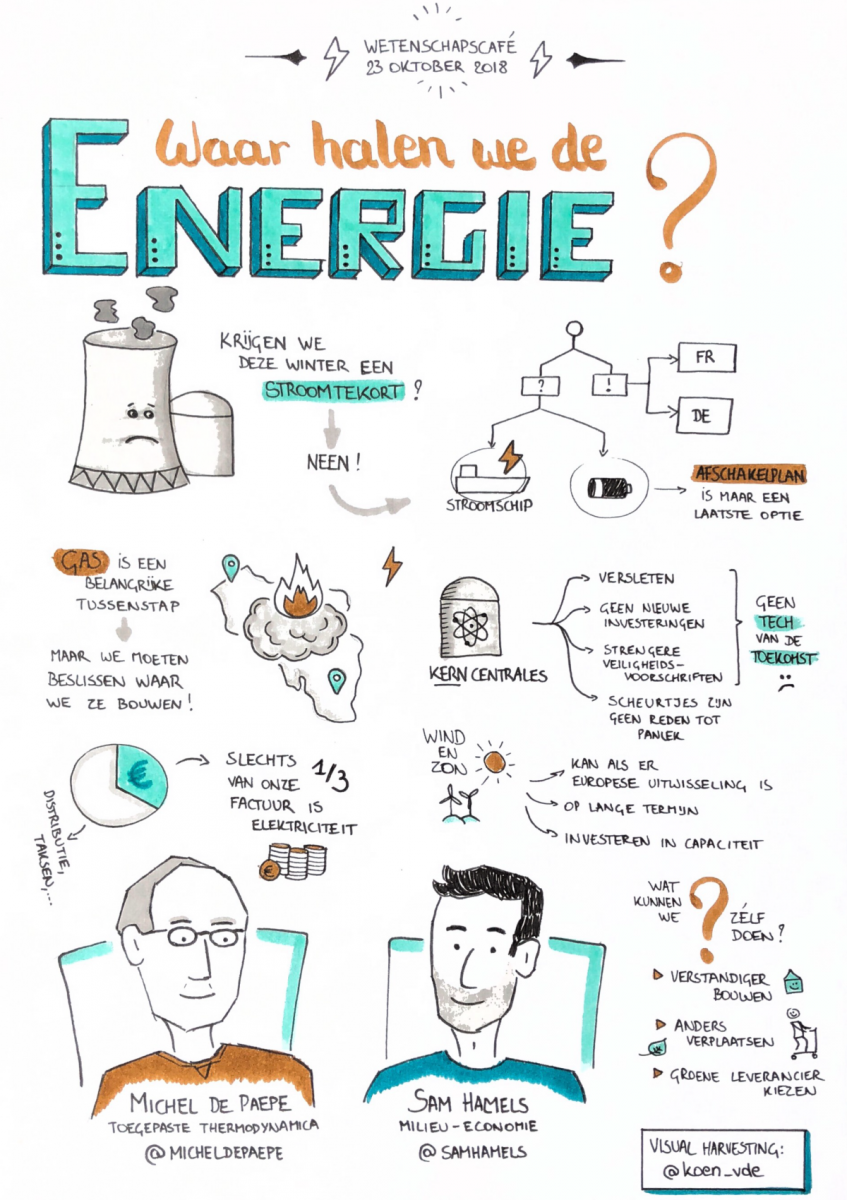 WETENSCHAPSCAFÉ
23 OKTOBER 2018
Waar halen we de
ENERGIE ?
KRIJGEN WE
DEZE WINTER EEN
STROOMTEKORT ?
NEEN !
?
!
FR
DE
STROOMSCHIP
AFSCHAKELPLAN
IS MAAR EEN
LAATSTE OPTIE
GAS IS EEN
BELANGRIJKE
TUSSENSTAP
MAAR WE MOETEN
BESLISSEN WAAR
WE ZE BOUWEN !
KERNCENTRALES
VERSLETEN
GEEN NIEUWE
INVESTERINGEN
STRENGERE
VEILIGHEIDS-
VOORSCHRIFTEN
SCHEURTJES ZIJN
GEEN REDEN TOT
PANIEK
GEEN
TECH
VAN DE
TOEKOMST
€
DISTRIBUTIE,
TAKSEN,...
SLECHTS 1/3
VAN ONZE
FACTUUR IS
ELEKTRICITEIT
€
WIND
EN
ZON
KAN ALS ER
EUROPESE UITWISSELING IS
OP LANGE TERMIJN
INVESTEREN IN CAPACITEIT
WAT
KUNNEN
WE
?
ZÉLF
DOEN ?
VERSTANDIGER
BOUWEN
ANDERS
VERPLAATSEN
GROENE LEVERANCIER
KIEZEN
MICHEL DE PAEPE
TOEGEPASTE THERMODYNAMICA
@MICHELDEPAEPE
SAM HAMELS
MILIEU-ECONOMIE
@SAMHAMELS
VISUAL HARVESTING:
@koen_vde